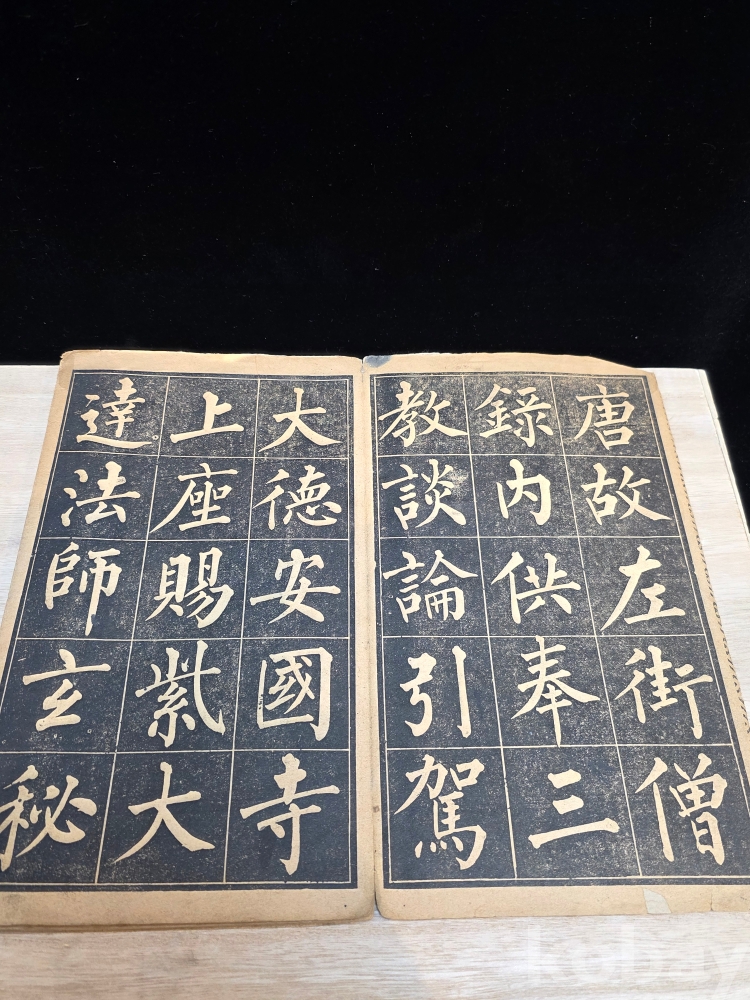 唐故左街僧
錄內供奉三
教談論引駕
大德安國寺
上座賜紫大
達法師玄秘
kobay